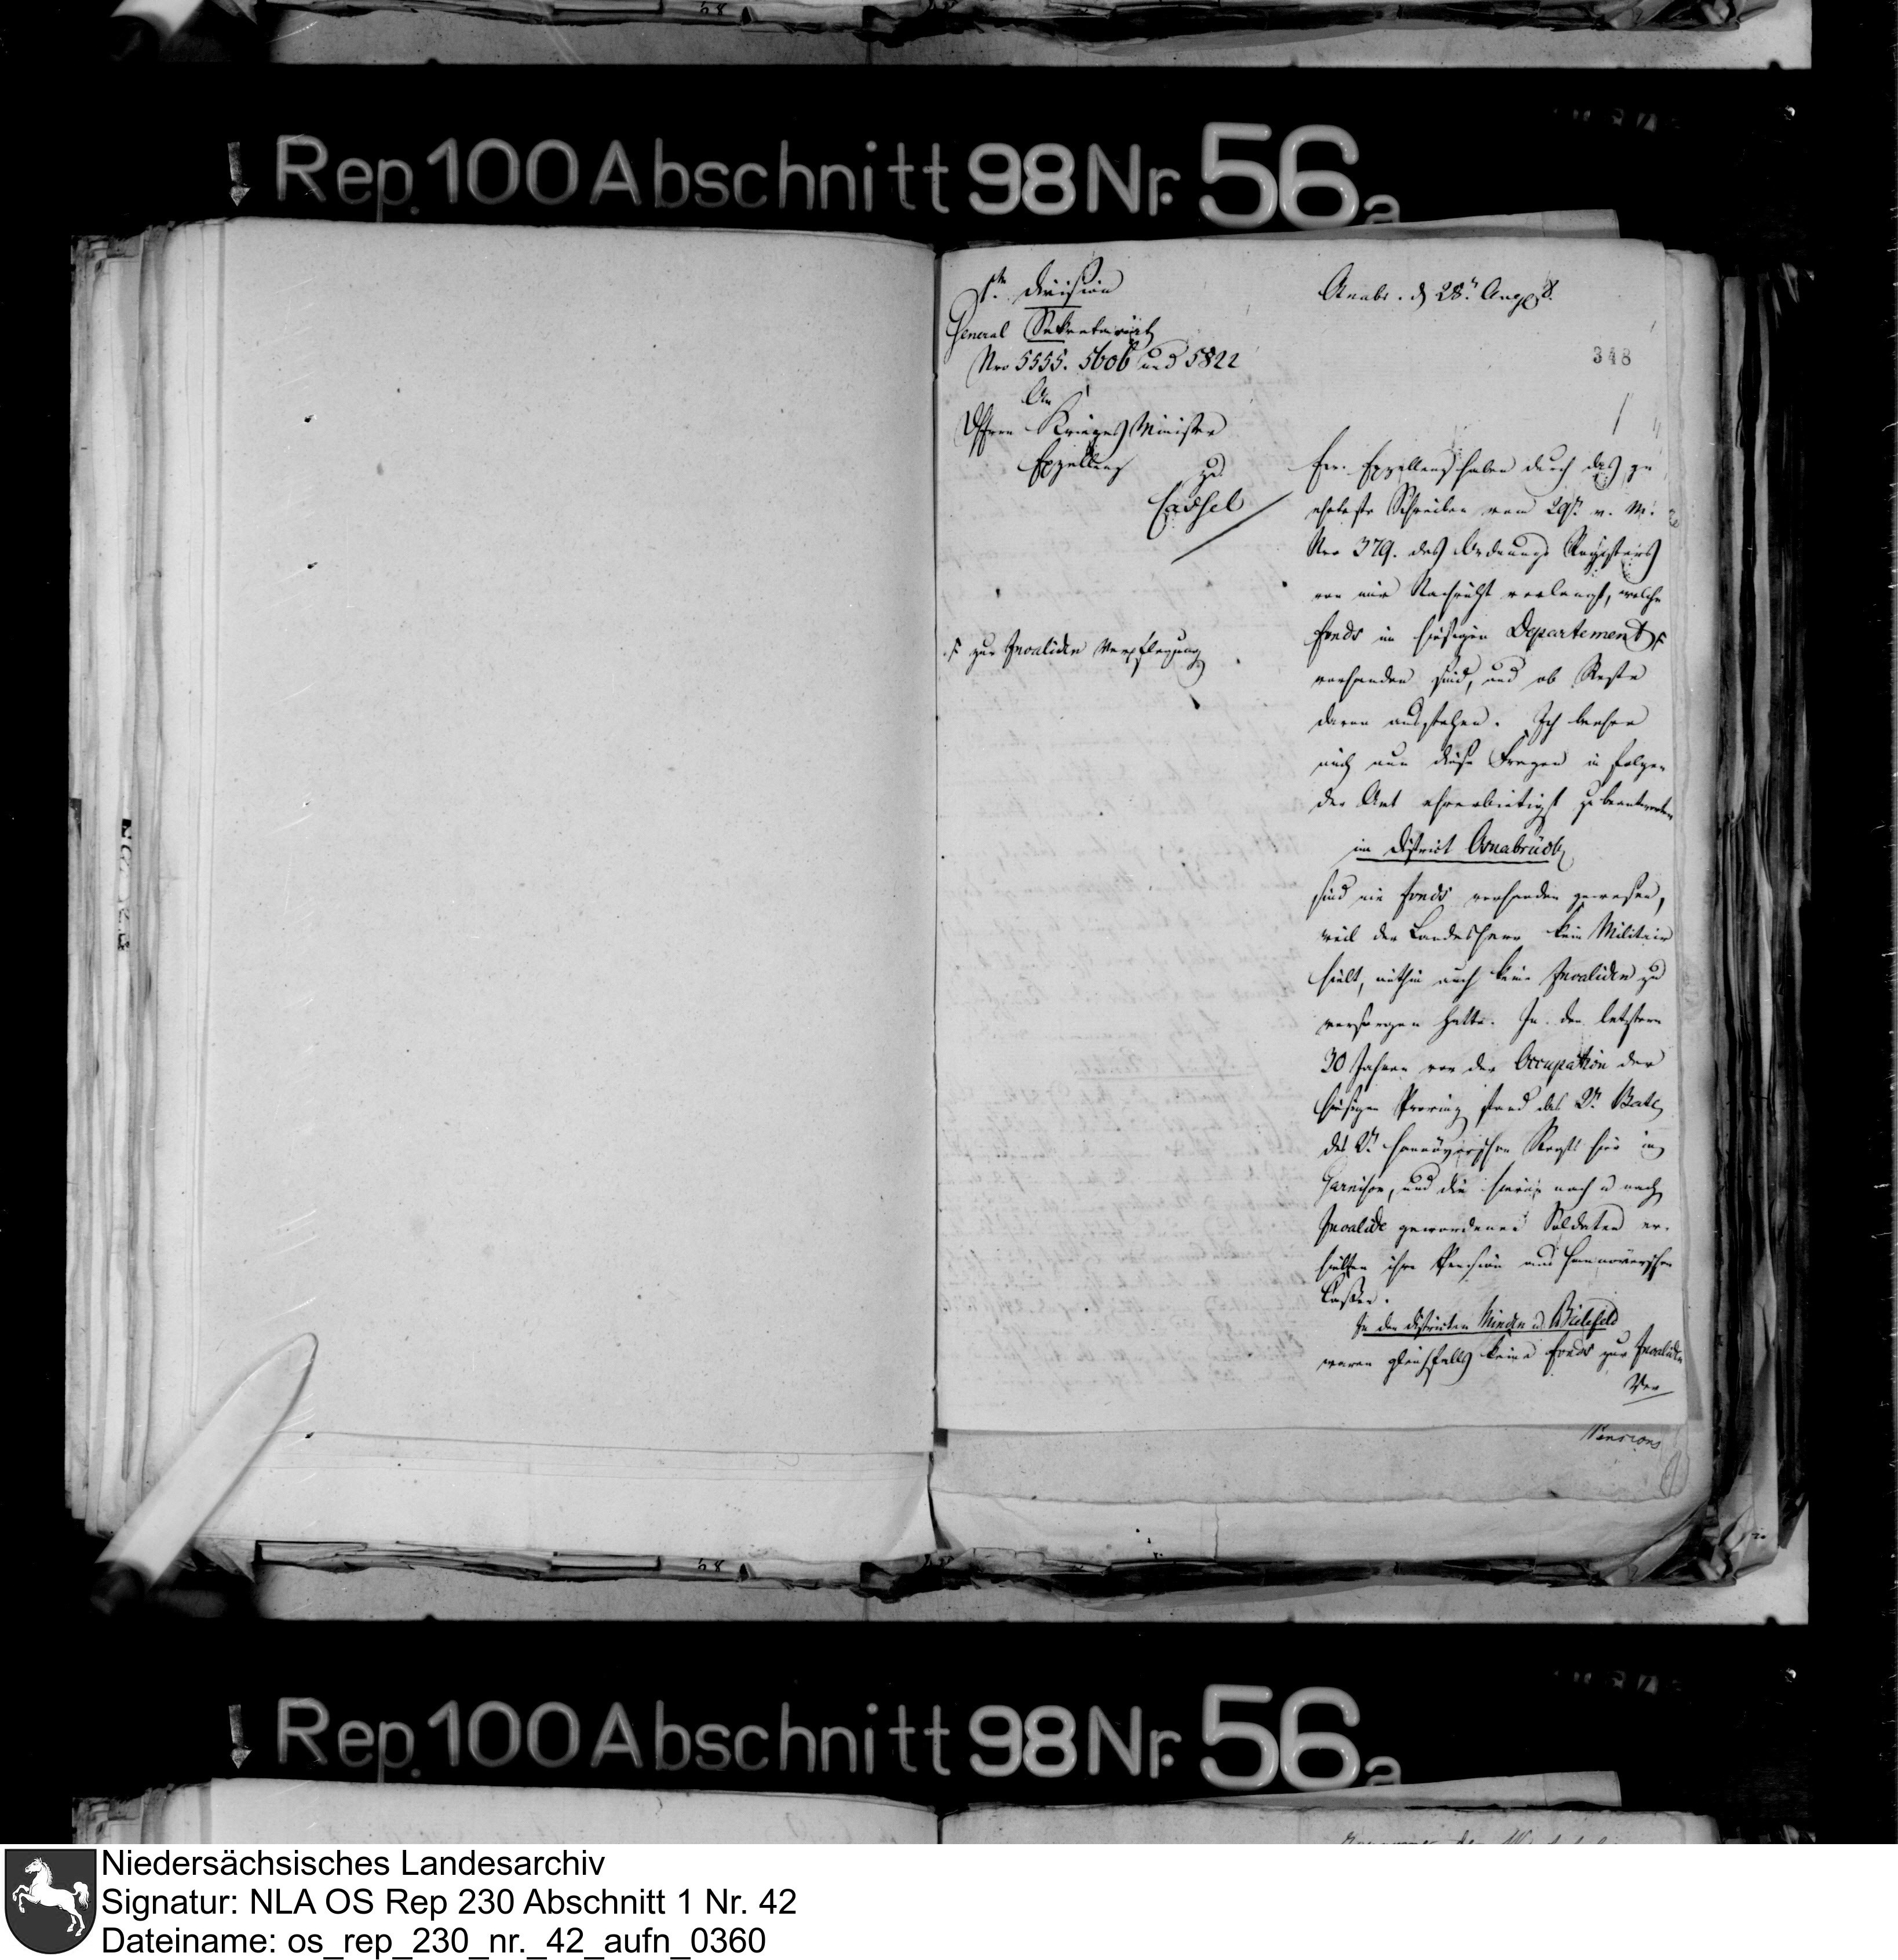 Rep. 100 Abschnitt 98 Nr. 56a
1te Division
General Sekretariat
Nro 5555. 5606 und 5822
An
Herrn Krieges Minister
Exzellenz
zu
Cassel
Osnabr. d 28t. Aug 8.
348
Ew. Exzellenz haben durch das ge
ehrteste Schreiben vom 29t. v. M.
Nro 379. des Ordnungs Registers
von mir Nachricht verlangt, welche
Fonds im hiesigen Departement
zur Invaliden Verpflegung
vorhanden sind, und ob Reste
davon ausstehen. Ich beehre
mich nun diese Fragen in folgen
der Art ehrerbietigst zu beantworten
im District Osnabrück
sind nie Fonds vorhanden gewesen,
weil der Landesherr kein Militair
hielt, mithin auch keine Invaliden zu
versorgen hatte. In den letztern
30 Jahren vor der Occupation der
hiesigen Provinz stand das 2t. Bat.
des hannöverschen Regts hier in
Garnison, und die hievon nach u nach
Invalide gewordenen Soldaten er-
hielten ihre Pension aus hannöverschen
Cassen.
In den Districten Minden u. Bielefeld
waren gleichfalls keine Fonds zur Invaliden
Ver
Pensions
Rep. 100 Abschnitt 98 Nr. 56a
Niedersächsisches Landesarchiv
Signatur: NLA OS Rep 230 Abschnitt 1 Nr. 42
Dateiname: os_rep_230_nr._42_aufn_0360